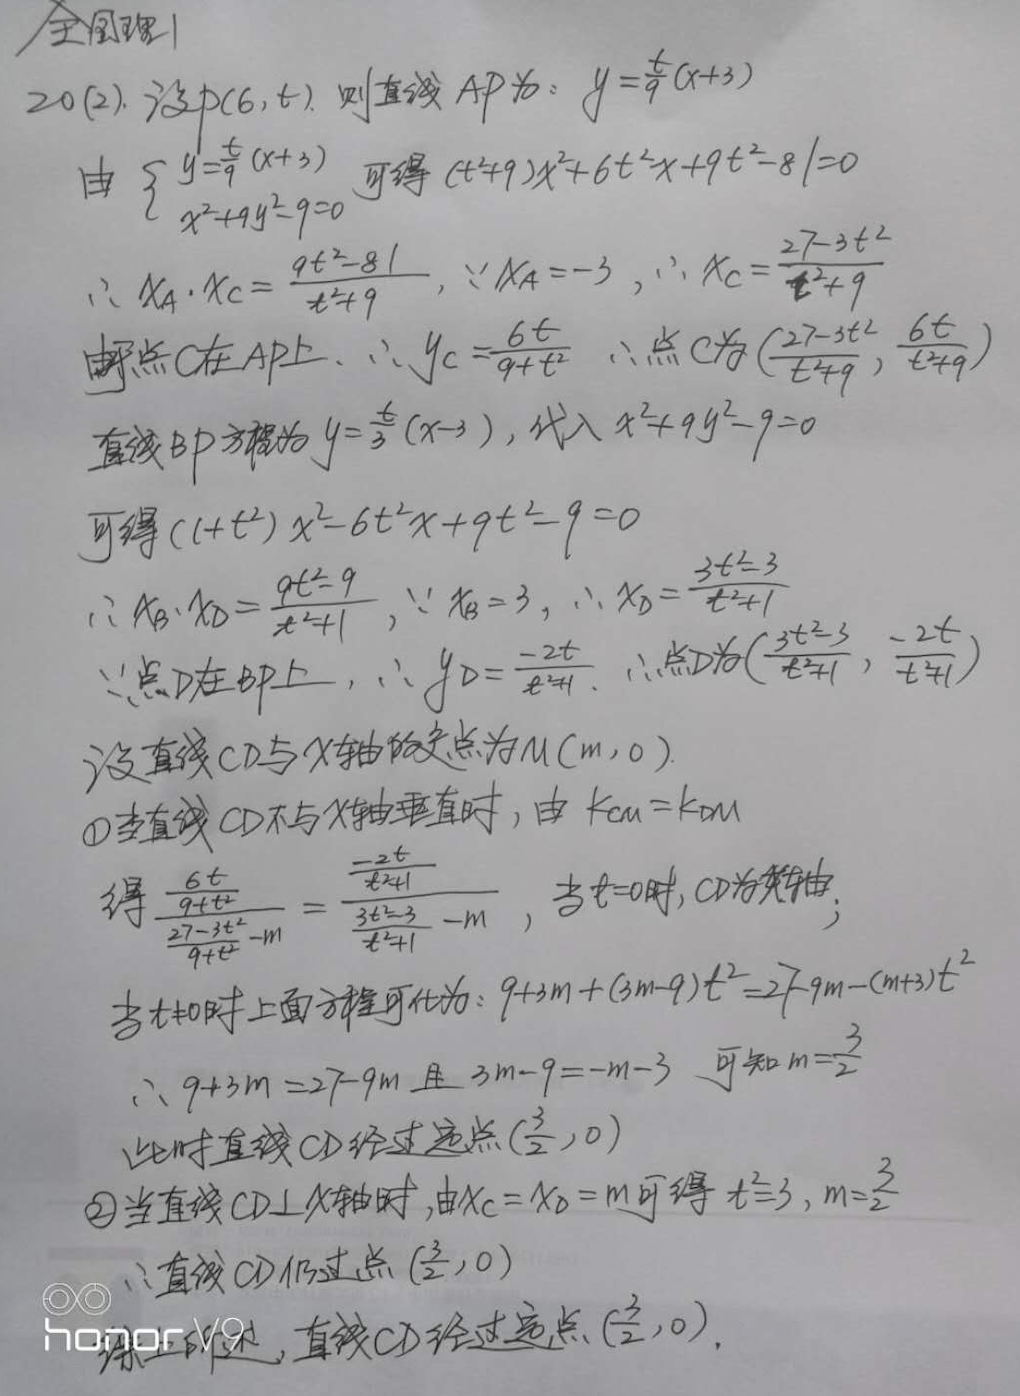 全国理1
20(2). 设P(6,t). 则直线AP为: y=t/9(x+3)
由 { y=t/9(x+3) x²+9y²-9=0 可得 (t²+9)x²+6t²x+9t²-81=0
∴ xA·xC=(9t²-81)/(t²+9), ∵ xA=-3, ∴ xC=(27-3t²)/(t²+9)
点C在AP上, ∴ yC=6t/(9+t²) ∴点C为((27-3t²)/(t²+9), 6t/(t²+9))
直线BP方程为 y=t/3(x-3), 代入 x²+9y²-9=0
可得 (1+t²)x²-6t²x+9t²-9=0
∴ xB·xD=(9t²-9)/(t²+1), ∵ xB=3, ∴ xD=(3t²-3)/(t²+1)
∵点D在BP上, ∴ yD=-2t/(t²+1). ∴点D为((3t²-3)/(t²+1), -2t/(t²+1))
设直线CD与X轴的交点为M(m,0).
①当直线CD不与X轴垂直时, 由 KCM=KDM
得 (6t/(9+t²))/((27-3t²)/(9+t²)-m) = (-2t/(t²+1))/((3t²-3)/(t²+1)-m), 当t=0时, CD为X轴;
当t≠0时上面方程可化为: 9+3m+(3m-9)t²=27-9m-(m+3)t²
∴ 9+3m=27-9m 且 3m-9=-m-3 可知 m=3/2
此时直线CD经过定点(3/2,0)
②当直线CD⊥X轴时, 由xC=xD=m可得 t²=3, m=3/2
∴直线CD仍过点(3/2,0)
综上所述, 直线CD经过定点(3/2,0).
honor V9